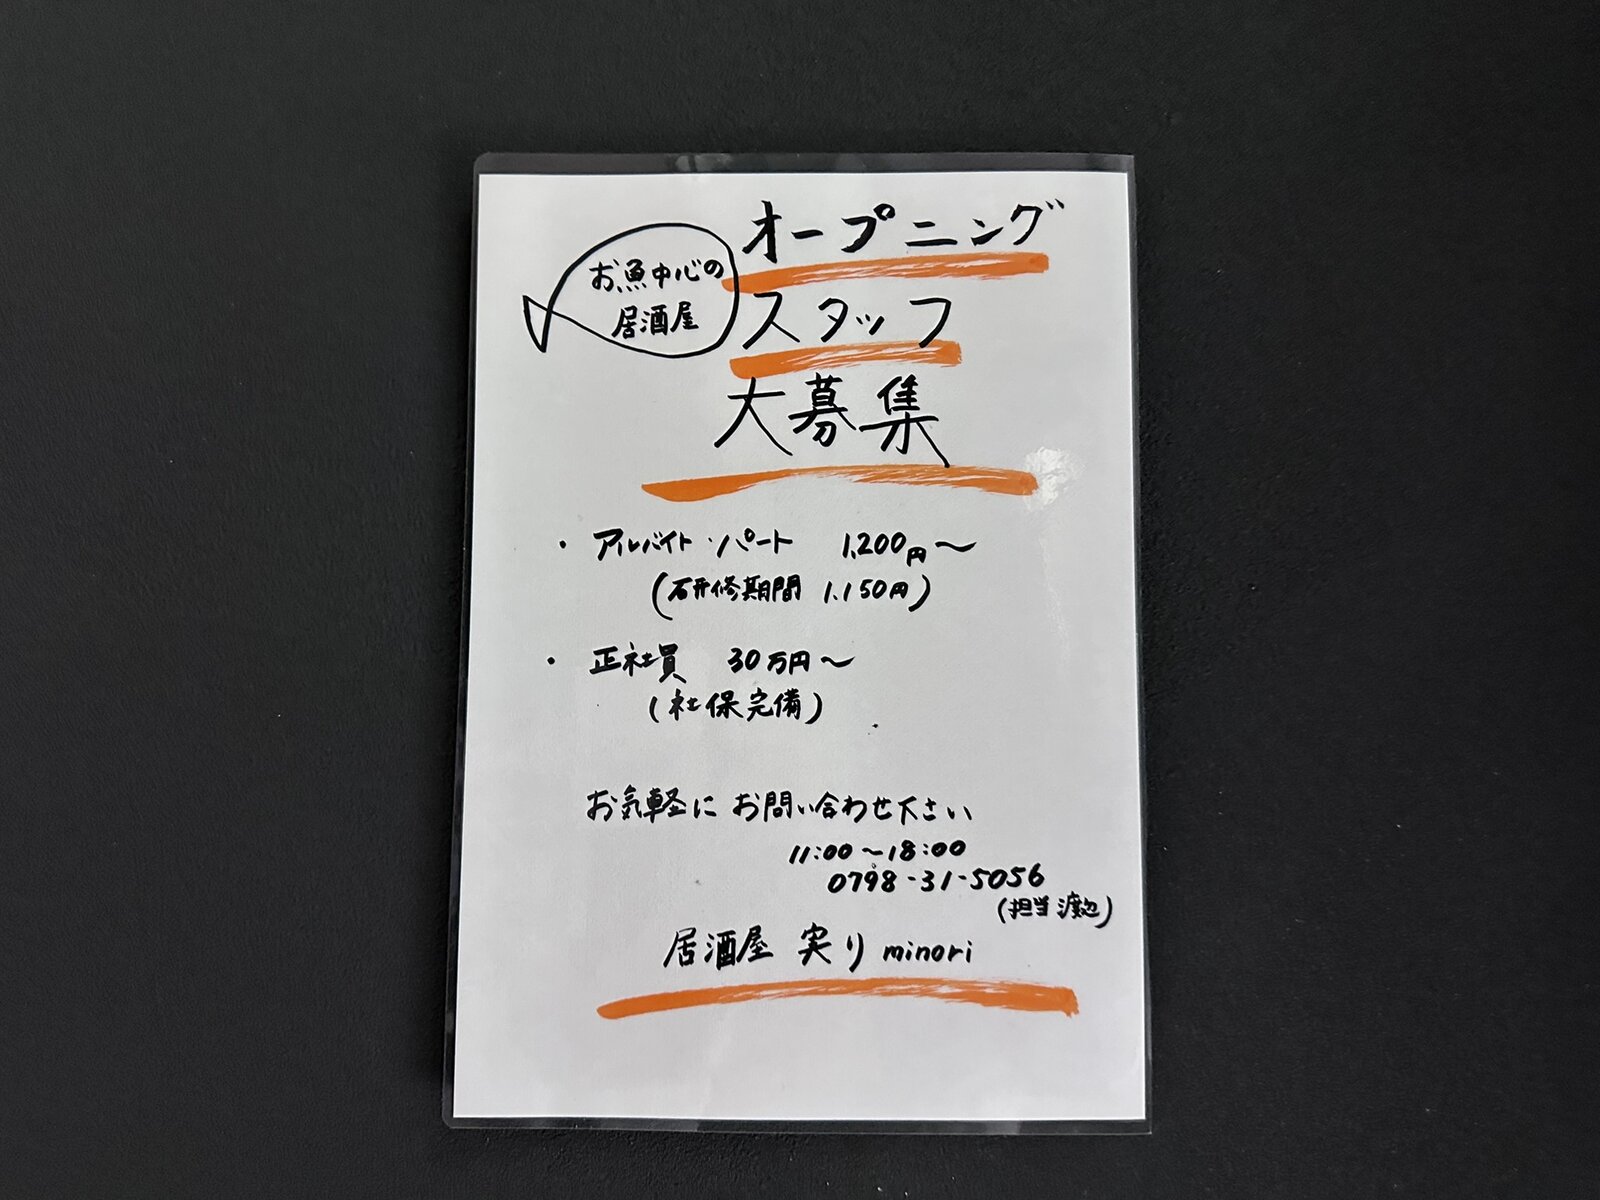 オープニング
お魚中心の
居酒屋
スタッフ
大募集
・アルバイト・パート 1,200円〜
(研修期間 1,150円)
・正社員 30万円〜
(社保完備)
お気軽にお問い合わせ下さい
11:00〜18:00
0798-31-5056
(担当 渡辺)
居酒屋 実り minori